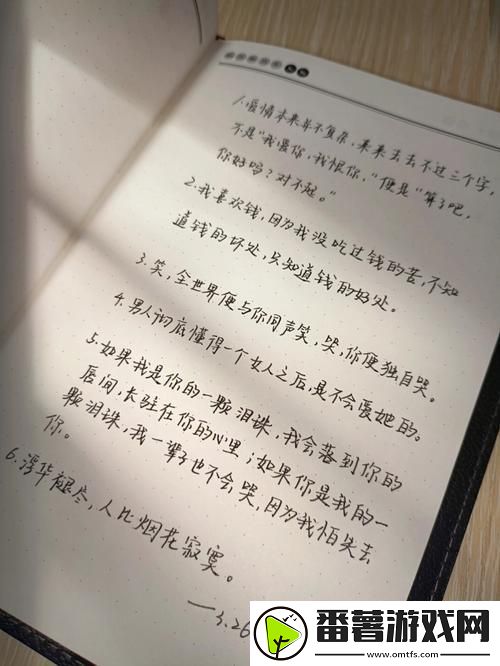 1.爱情本来并不复杂，来来去去不过三个字，
不是“我爱你，我恨你，”便是“算了吧，
你好吗？对不起。”
2.我喜欢钱，因为我没吃过钱的苦，不知
道钱的坏处，只知道钱的好处。
3.笑，全世界便与你同声笑，哭，你便独自哭。
4.男人彻底懂得一个女人之后，是不会爱她的。
5.如果我是你的一颗泪珠，我会落到你的
唇间，长驻在你的心里；如果你是我的一
颗泪珠，我一辈子也不会哭，因为我怕失去
你。
6.浮华褪尽，人比烟花寂寞。
——3.26
番薯游戏网
www.omtfs.com